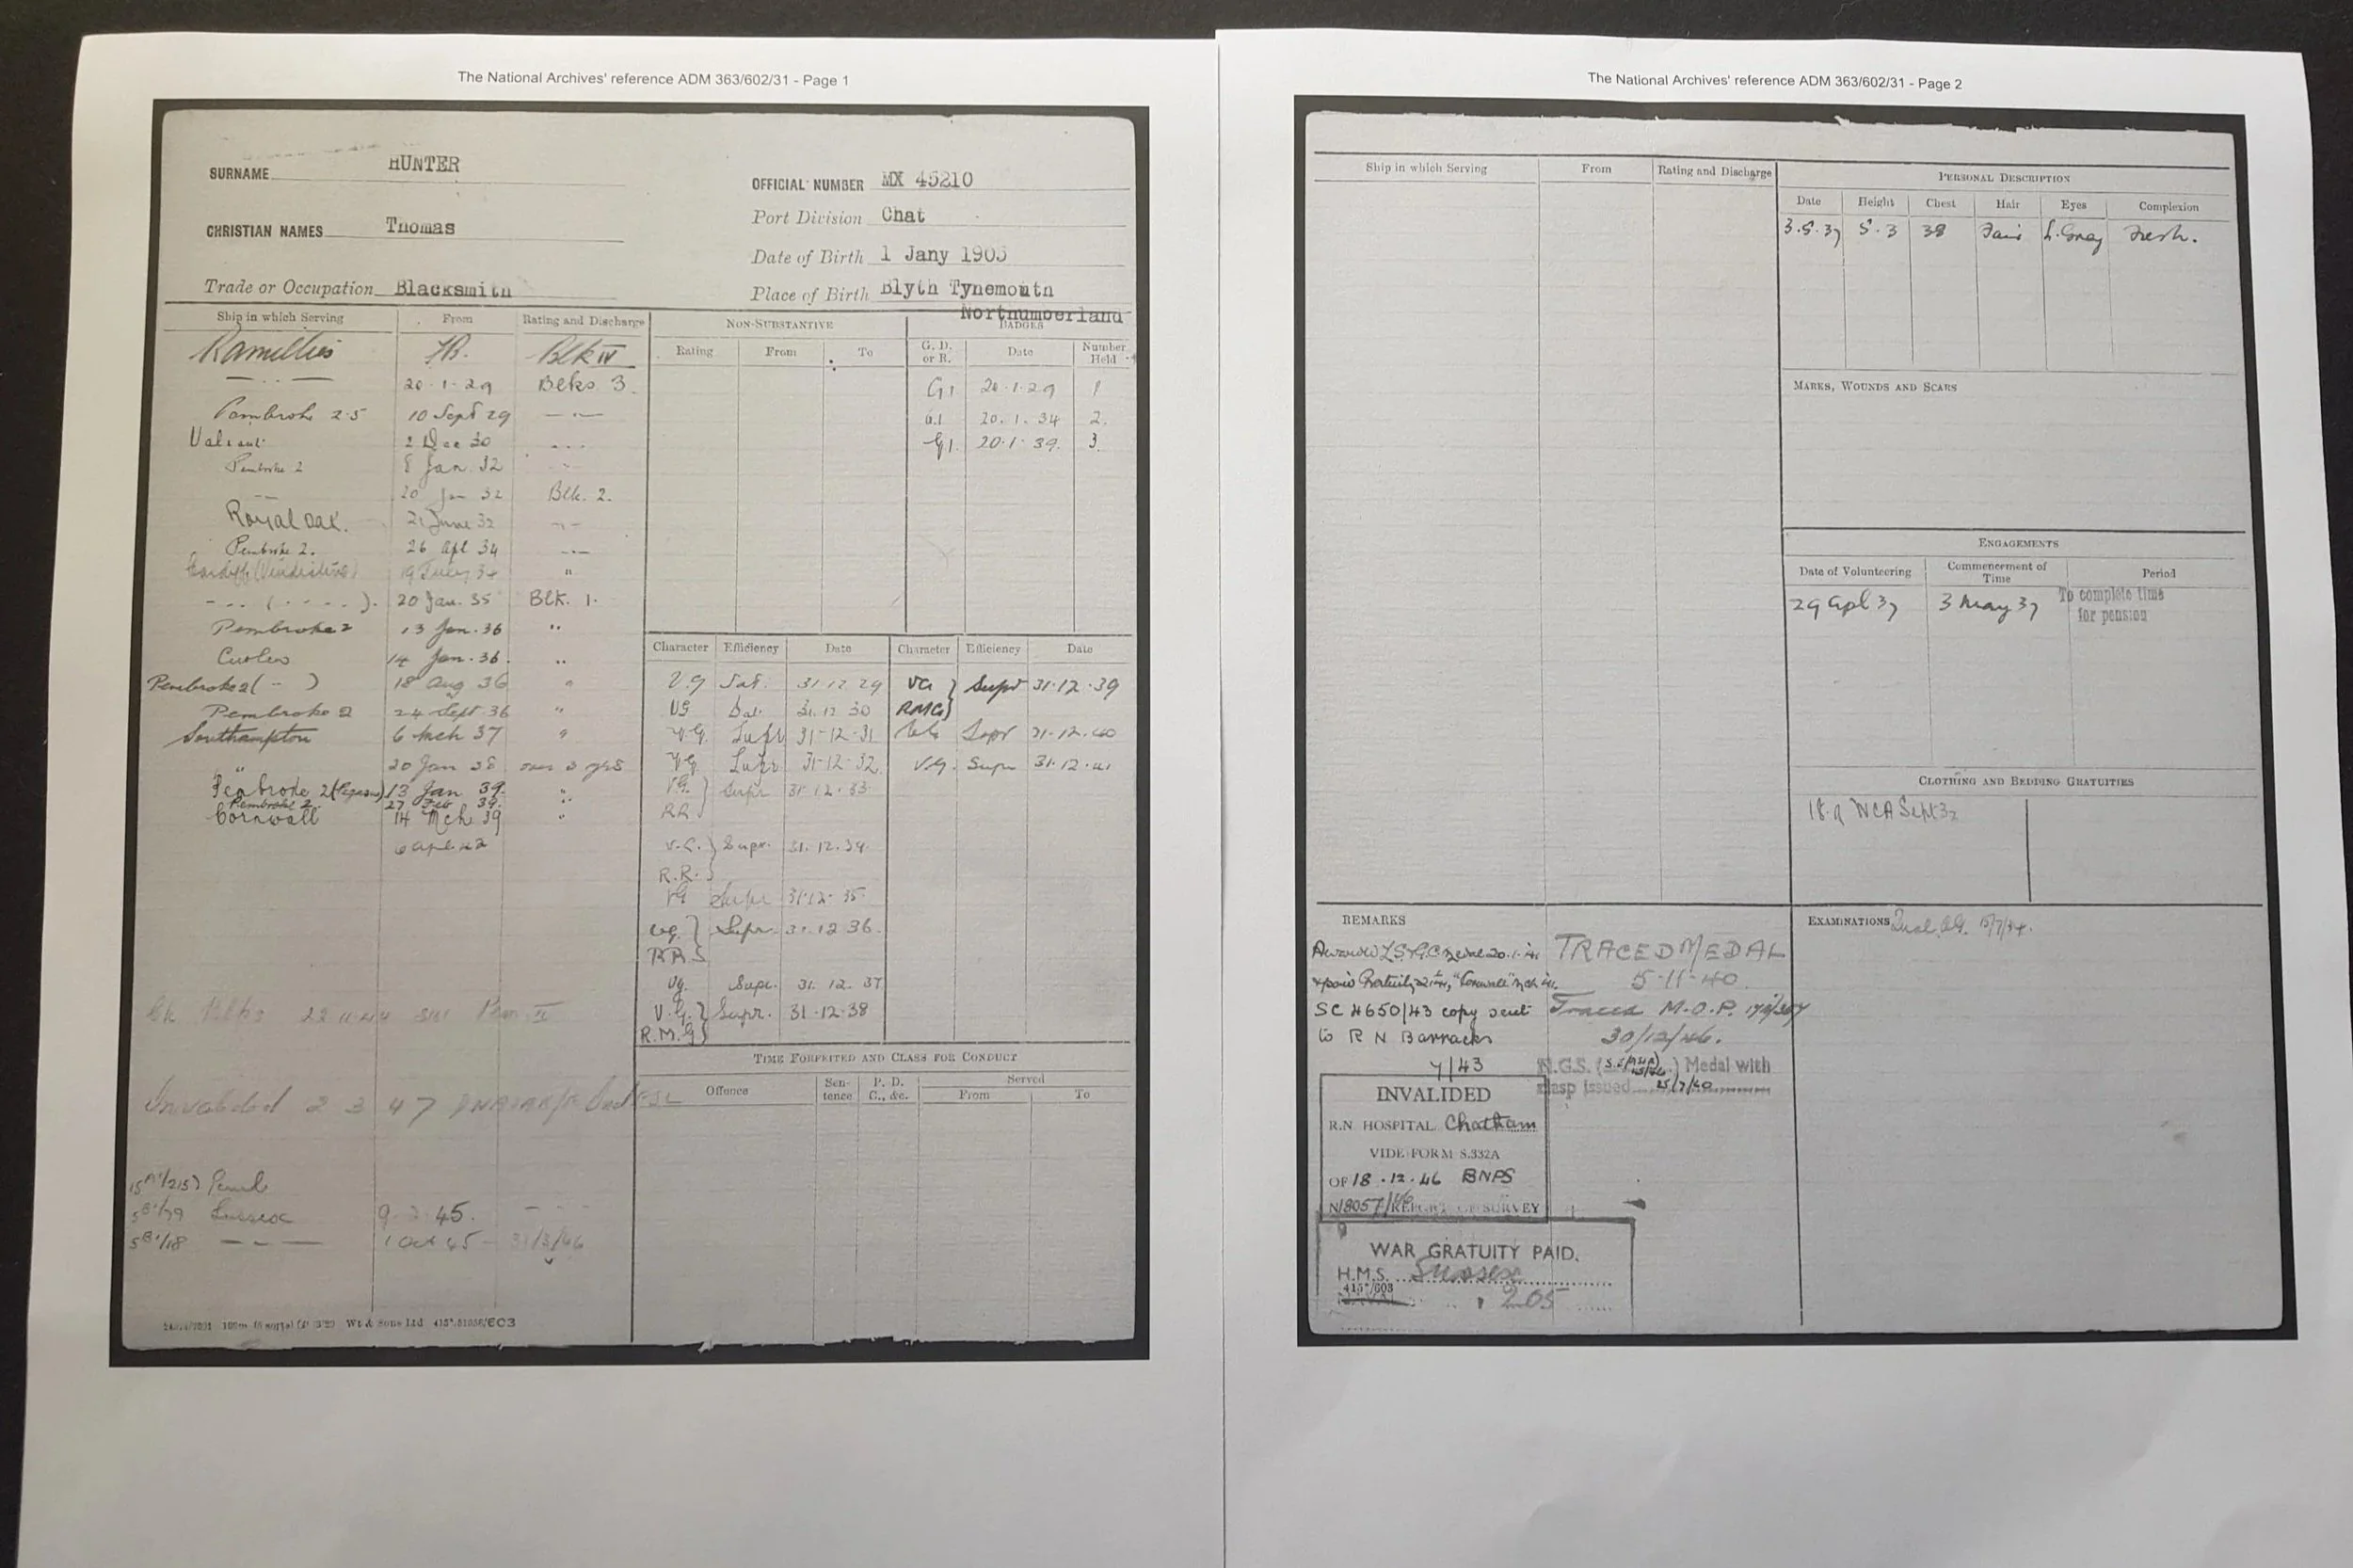 The National Archives' reference ADM 363/602/31 - Page 1
SURNAME HUNTER
OFFICIAL NUMBER MX 45210
Port Division Chat
CHRISTIAN NAMES Thomas
Date of Birth 1 Jany 1905
Trade or Occupation Blacksmith
Place of Birth Blyth Tynemouth
Northumberland
Ship in which Serving From Rating and Discharge
Ramillies Blk IV
20·1·29 Blks. 3.
Pembroke 2·5 10 Sept 29
Valiant 2 Dec 30
Pembroke 2 8 Jan. 32
20 Jan 32 Blk. 2.
Royal Oak. 21 June 32
Pembroke 2. 26 Apl 34
Cardiff (Vindictive) 19 July 34 "
20 Jan. 35 Blk. 1.
Pembroke 2 13 Jan. 36 "
Curlew 14 Jan. 36. "
Pembroke 2 ( - ) 18 Aug 36 "
Pembroke 2 24 Sept 36 "
Southampton 6 Mch 37 "
20 Jan 38 over 3 yrs
Pembroke 2 (Pegasus) 13 Jan 39. "
Pembroke 2. 27 Feb 39. "
Cornwall 14 Mch 39 "
6 Apl 42
22 11 44
Invalided 2 3 47
Sussex 45.
1 Oct 45 - 31/3/46
NON-SUBSTANTIVE
Rating From To
BADGES
G. D. or R. Date Number Held
G1 20·1·29 1
G1 20.1.34 2.
G1. 20·1·39. 3.
Character Efficiency Date Character Efficiency Date
V.G Sat. 31·12·29 VG } Supr 31·12·39
VG Sat. 31.12 30 RMG}
V.G. Supr 31-12-31 Supr 31.12.40
VG Supr 31-12-32 V.G. Supr 31.12.41
VG. } Supr 31.12.33
RR }
V.G. } Supr. 31.12.34.
R.R. }
VG Supr 31·12·35
VG. } Supr. 31·12 36.
RR }
VG. Supr. 31. 12. 37
V.G. } Supr. 31·12·38
R.M.G }
TIME FORFEITED AND CLASS FOR CONDUCT
Offence Sentence P. D. C., &c. Served
From To
The National Archives' reference ADM 363/602/31 - Page 2
Ship in which Serving From Rating and Discharge
PERSONAL DESCRIPTION
Date Height Chest Hair Eyes Complexion
3.5.37 5.3 38 Fair L. Grey Fresh.
MARKS, WOUNDS AND SCARS
ENGAGEMENTS
Date of Volunteering Commencement of Time Period
29 Apl 37 3 May 37 To complete time
for pension
CLOTHING AND BEDDING GRATUITIES
REMARKS
TRACED MEDAL
5-11-40
SC 4650/43 copy sent
to R N Barracks
4/43
Traced M.O.P.
30/12/46.
N.G.S. Medal with
clasp issued 25/7/40
INVALIDED
R.N. HOSPITAL Chatham
VIDE FORM S.332A
OF 18.12.46 BNPS
REPORT OF SURVEY
WAR GRATUITY PAID.
H.M.S. Sussex
415A/603
265
EXAMINATIONS